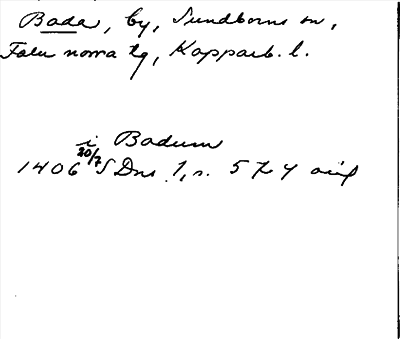 Bada, by, Sundborns sn,
Falu norra tg, Kopparb. l.
i Badum
1406 20/7 SDns 1, s. 574 avs